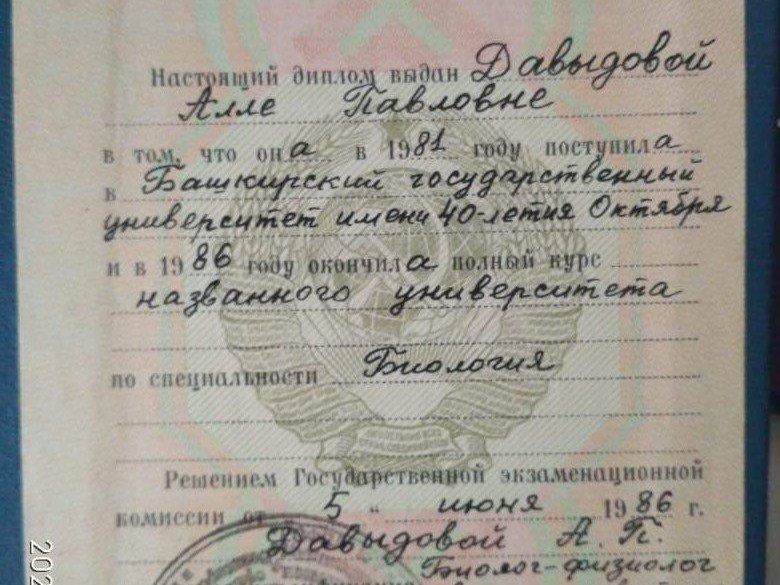 Настоящий диплом выдан Давыдовой
Алле Павловне
в том, что она в 1981 году поступила
в Башкирский государственный
университет имени 40-летия Октября
и в 1986 году окончила полный курс
названного университета
по специальности Биология
Решением Государственной экзаменационной
комиссии от 5 " июня 1986 г.
Давыдовой А. П.
Биолог-физиолог
202